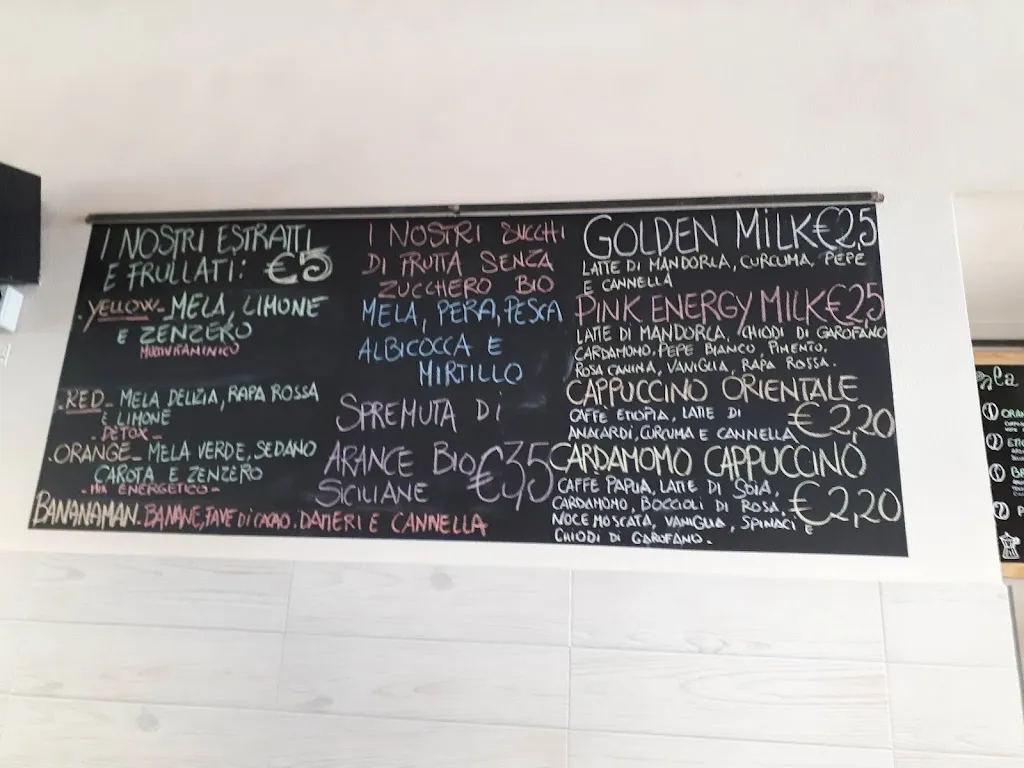 I NOSTRI ESTRATTI
E FRULLATI: €5
.YELLOW- MELA, LIMONE
E ZENZERO
MULTIVITAMINICO
.RED- MELA DELIZIA, RAPA ROSSA
E LIMONE
- DETOX -
.ORANGE- MELA VERDE, SEDANO
CAROTA E ZENZERO
ENERGETICO -
BANANAMAN- BANANE, FAVE DI CACAO. DATTERI E CANNELLA
I NOSTRI SUCCHI
DI FRUTTA SENZA
ZUCCHERO BIO
MELA, PERA, PESCA
ALBICOCCA E
MIRTILLO
SPREMUTA DI
ARANCE BIO €3,5
SICILIANE
GOLDEN MILK €2,5
LATTE DI MANDORLA, CURCUMA, PEPE
E CANNELLA
PINK ENERGY MILK €2,5
LATTE DI MANDORLA, CHIODI DI GAROFANO
CARDAMOMO, PEPE BIANCO, PIMENTO,
ROSA CANINA, VANIGLIA, RAPA ROSSA.
CAPPUCCINO ORIENTALE
CAFFE ETIOPIA, LATTE DI €2,20
ANACARDI, CURCUMA E CANNELLA
CARDAMOMO CAPPUCCINO
CAFFE PAPUA, LATTE DI SOIA, €2,20
CARDAMOMO, BOCCIOLI DI ROSA,
NOCE MOSCATA, VANIGLIA, SPINACI E
CHIODI DI GAROFANO.